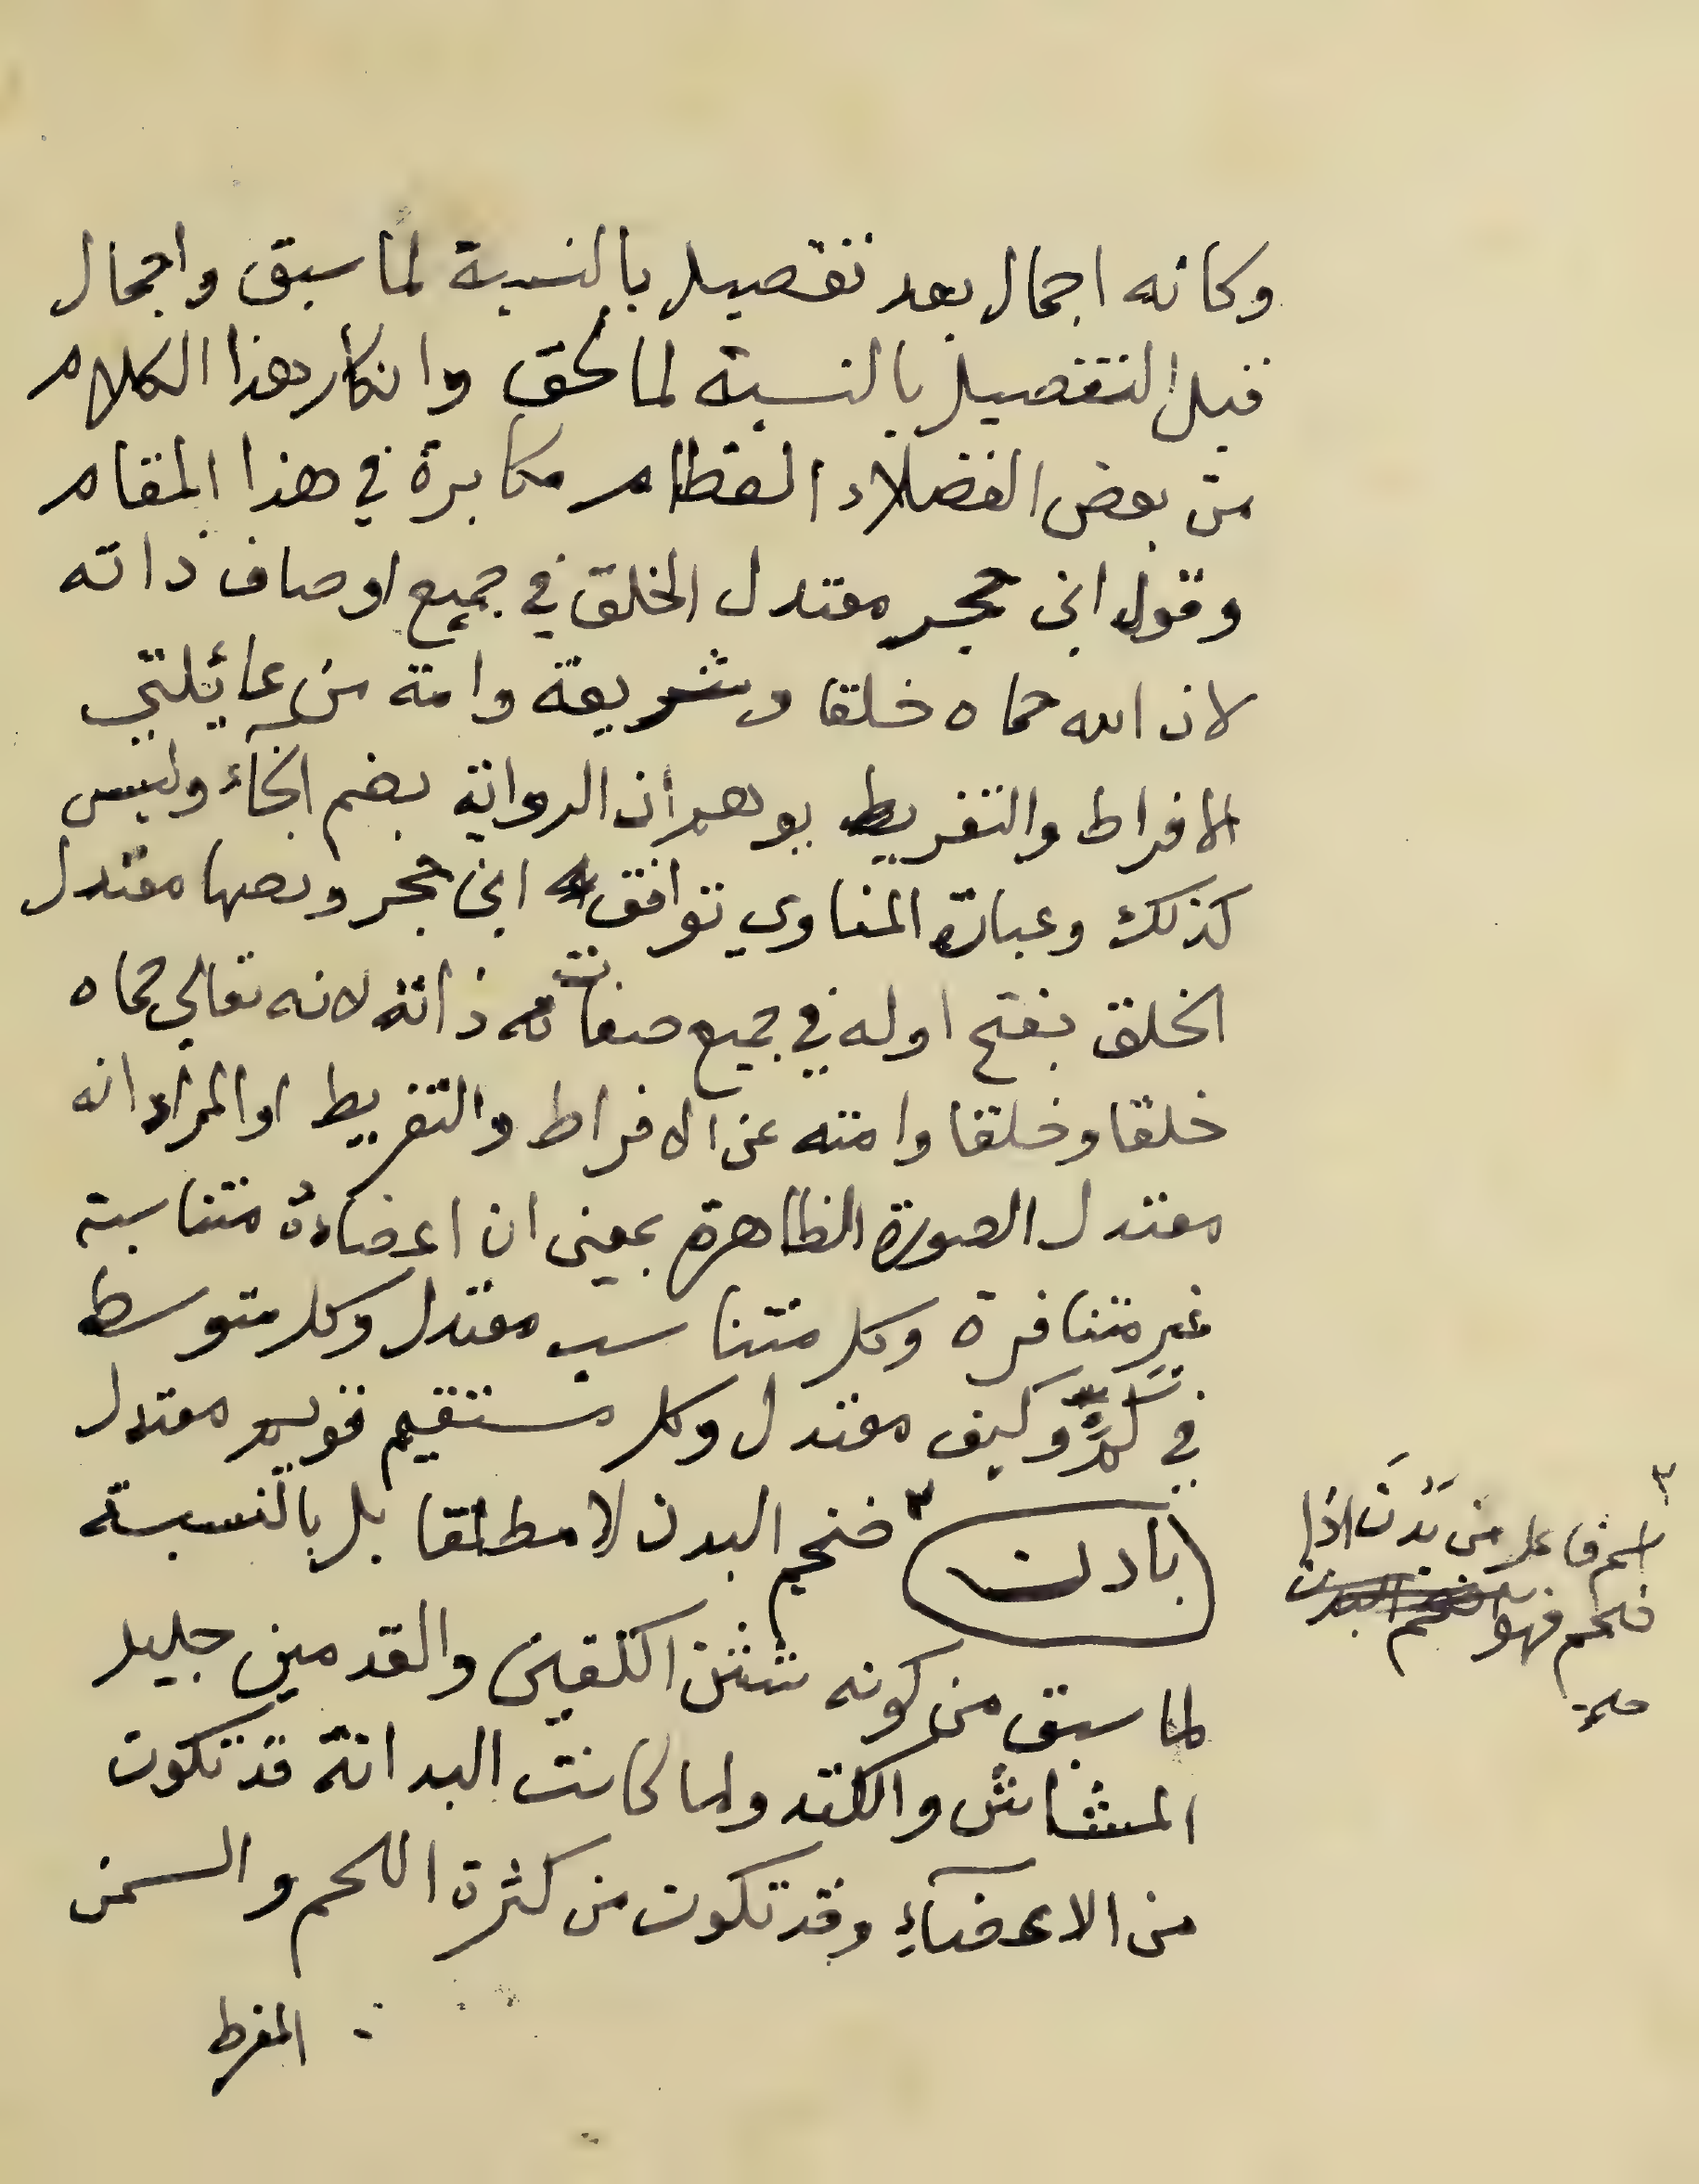 وكانه اجمال بعد تفصيل بالنسبة لما سبق واجمال
قبل التفصيل بالنسبة لما لحق وانكار هذا الكلام
من بعض الفضلاء العظام مكابرة في هذا المقام
وقول ابن حجر معتدل الخلق في جميع اوصاف ذاته
لان الله حماه خلقا وشريعة وامة من غائلتي
الافراط والتفريط يوهم أن الرواية بضم الخاء وليس
كذلك وعبارة المناوي توافق ابن حجر ونصها معتدل
الخلق بفتح اوله في جميع صفات ذاته لانه تعالى حماه
خلقا وخلقا وامته عن الافراط والتفريط او المراد انه
معتدل الصورة الظاهرة بمعنى ان اعضاءهُ متناسبة
غير متنافرة وكل متناسب معتدل وكل متوسط
في كمٍّ وكيف معتدل وكل مستقيم قويم معتدل
بادن ٣ ضخيم البدن لا مطلقا بل بالنسبة
لما سبق من كونه شثن الكفين والقدمين جليل
المشاش والكتد ولما كانت البدانة قد تكون
من الاعضآءِ وقد تكون من كثرة اللحم والسمن
المفرط
٣
اسم فاعل من بَدَنَ اذا
ضخم فهو ضخم البدن